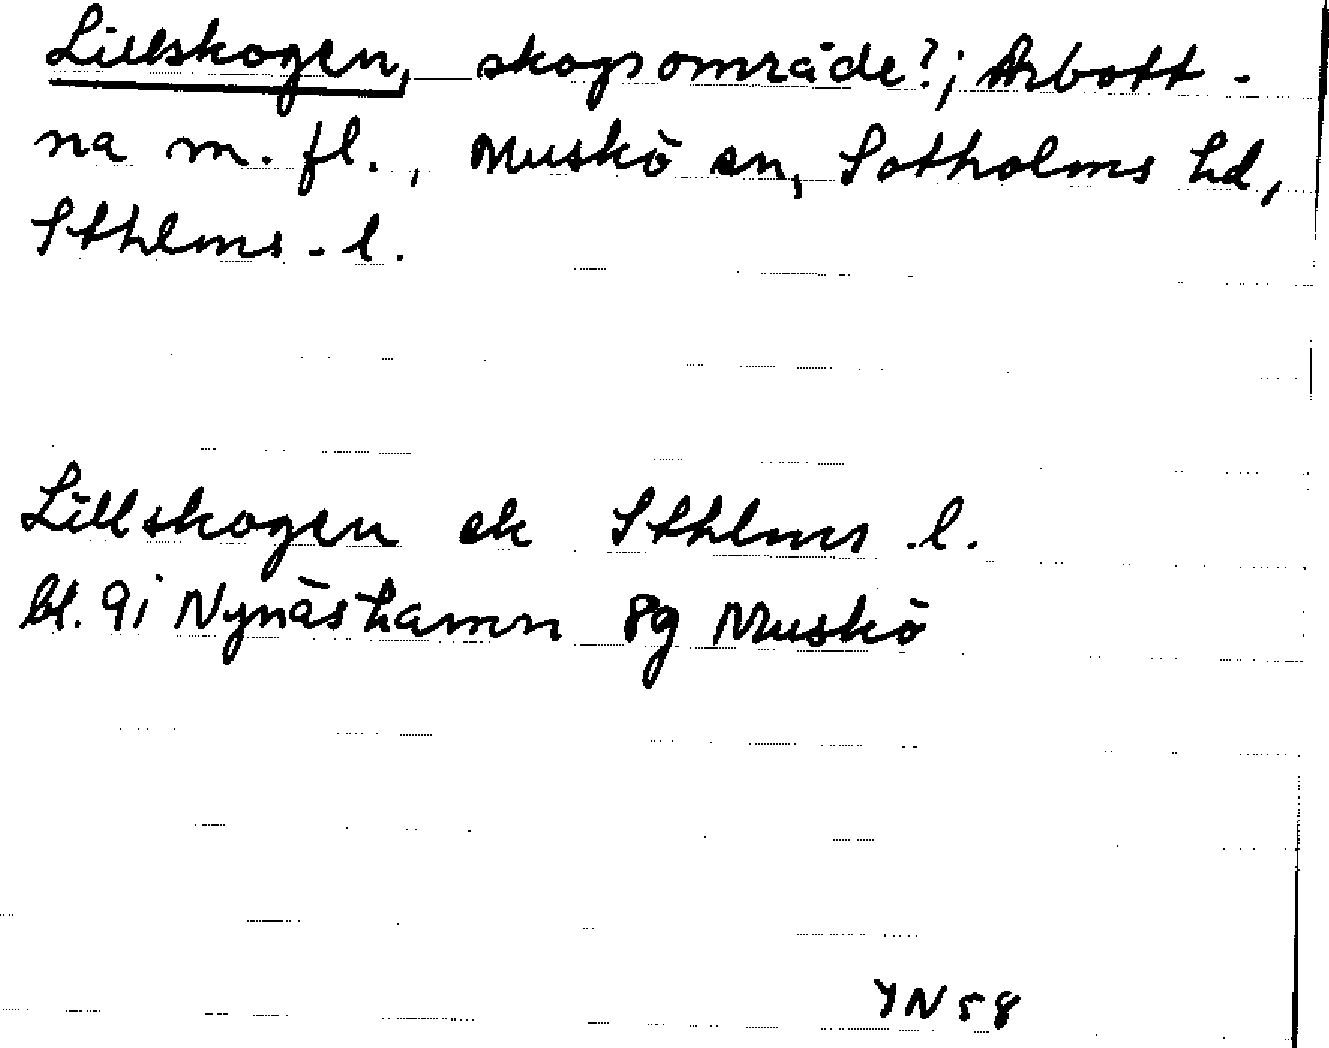 Lillskogen, skogsområde?; Arbott-
na m. fl., Muskö sn, Sotholms hd,
Sthlms - l.
Lillskogen ek Sthlms .l.
bl. 9i Nynäshamn 8g Muskö
YN58